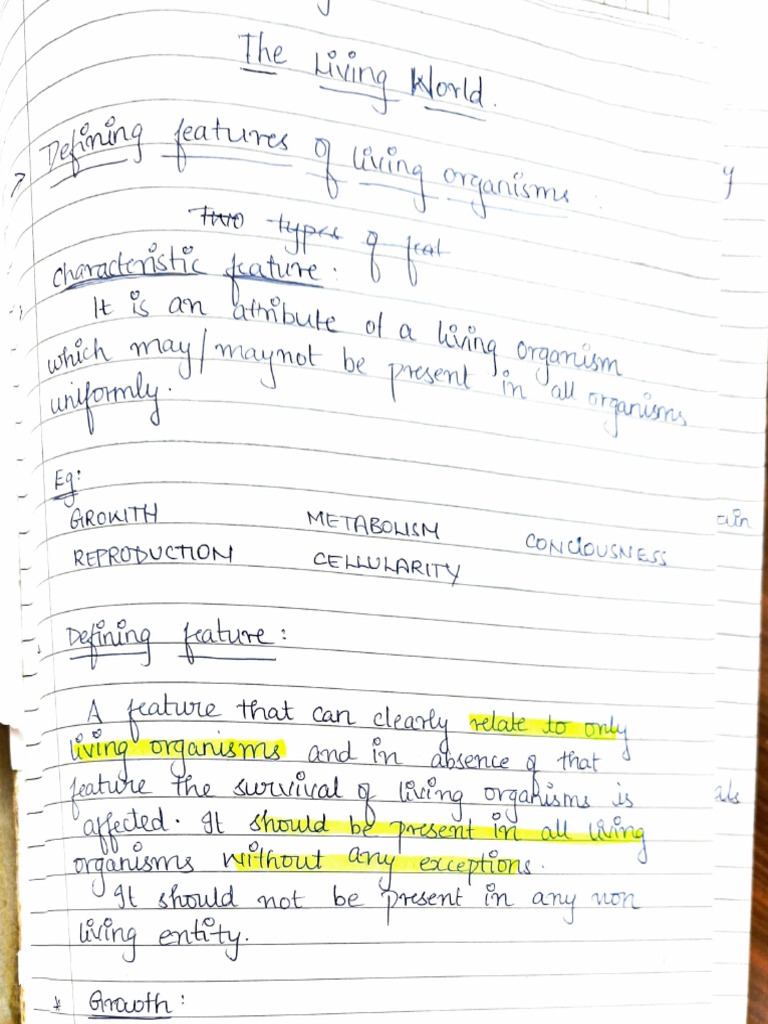 The Living World.
Defining features of living organisms
two types of feat
characteristic feature:
It is an attribute of a living organism
which may/maynot be present in all organisms
uniformly.
Eg:
GROWTH METABOLISM CONCIOUSNESS
REPRODUCTION CELLULARITY
Defining feature:
A feature that can clearly relate to only
living organisms and in absence of that
feature the survival of living organisms is
affected. It should be present in all living
organisms without any exceptions.
It should not be present in any non
living entity.
* Growth: